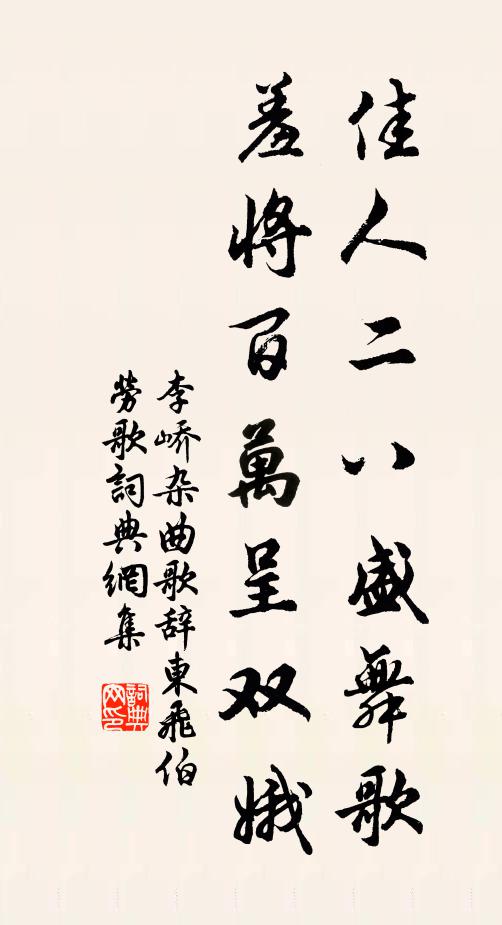 佳人二八盛舞歌
羞將百萬呈双娥
李峤杂曲歌辞東飛伯
勞歌詞典網集
詞典
网印